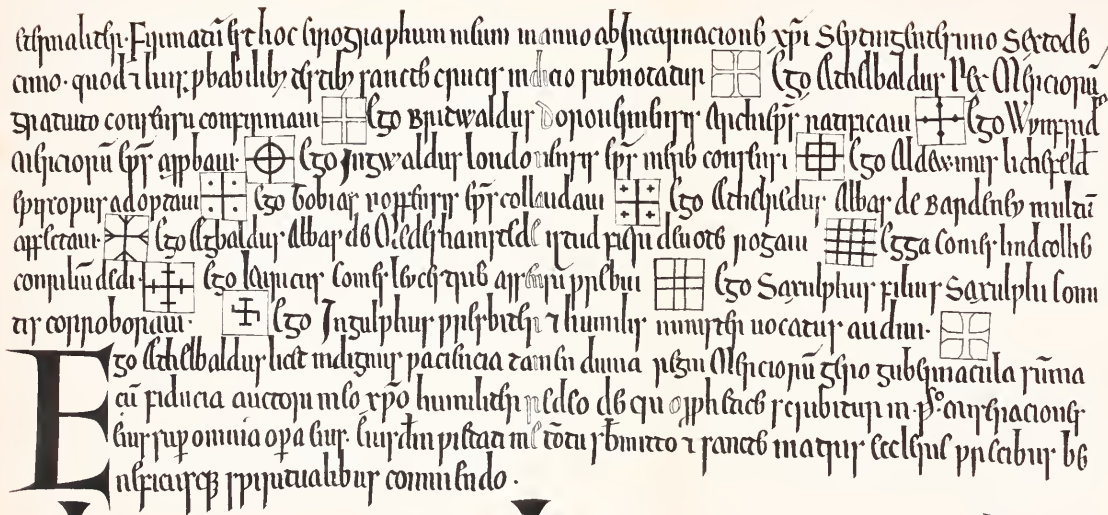 eternaliter. Firmatū ē hoc cirographum meum in anno ab Incarnacione xp̄i Septingentesimo Sextode
cimo. quod ⁊ huic ꝓbabilib; testib; sancte crucis indicio subnotatur Ego Athelbaldus Rex Merciorū
gratuito consensu confirmaui Ego Bricwaldus Dorouernensis Archiep̄s ratificaui Ego Wynfrid
Merciorū ep̄s approbaui Ego Ingwaldus londoniensis ep̄s mente consensi Ego Aldewinus lichefeld
episcopus adoptaui Ego Tobias roffensis ep̄s collaudaui Ego Ethelredus Abbas de Bardeney multū
affectaui Ego Egbaldus Abbas de Medeshamstede istud fieri deuote rogaui Egga comes lindcollie
consiliū dedi Ego leuricus comes leycestrie assensū prebui Ego Saxulphus filius Saxulphi comi
tis corroboraui Ego Ingulphus presbiter ⁊ humilis minister uocatus audiui
Ego Athelbaldus licet indignus paciencia tamen diuina regni Merciorū gero gubernacula sūma
cū fiducia auctori meo xp̄o humiliter credo de quo ꝓphetice scribitur miseraciones
eius suꝑ omnia oꝑa eius. Cuius pietati me totū sb̄mitto ⁊ sancte matris Ecclesie precibus be
neficiisq; spiritualibus comendo.